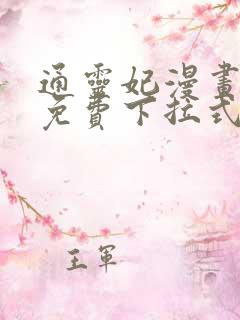 通靈妃漫畫
免費下拉式
王軍